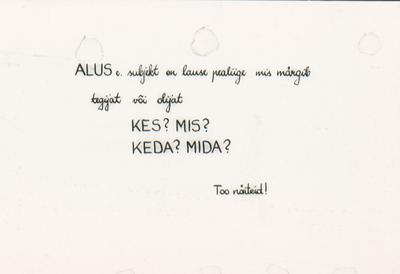 ALUS e. subjekt on lause pealiige mis märgib
tegijat või olijat
KES? MIS?
KEDA? MIDA?
Too näiteid!